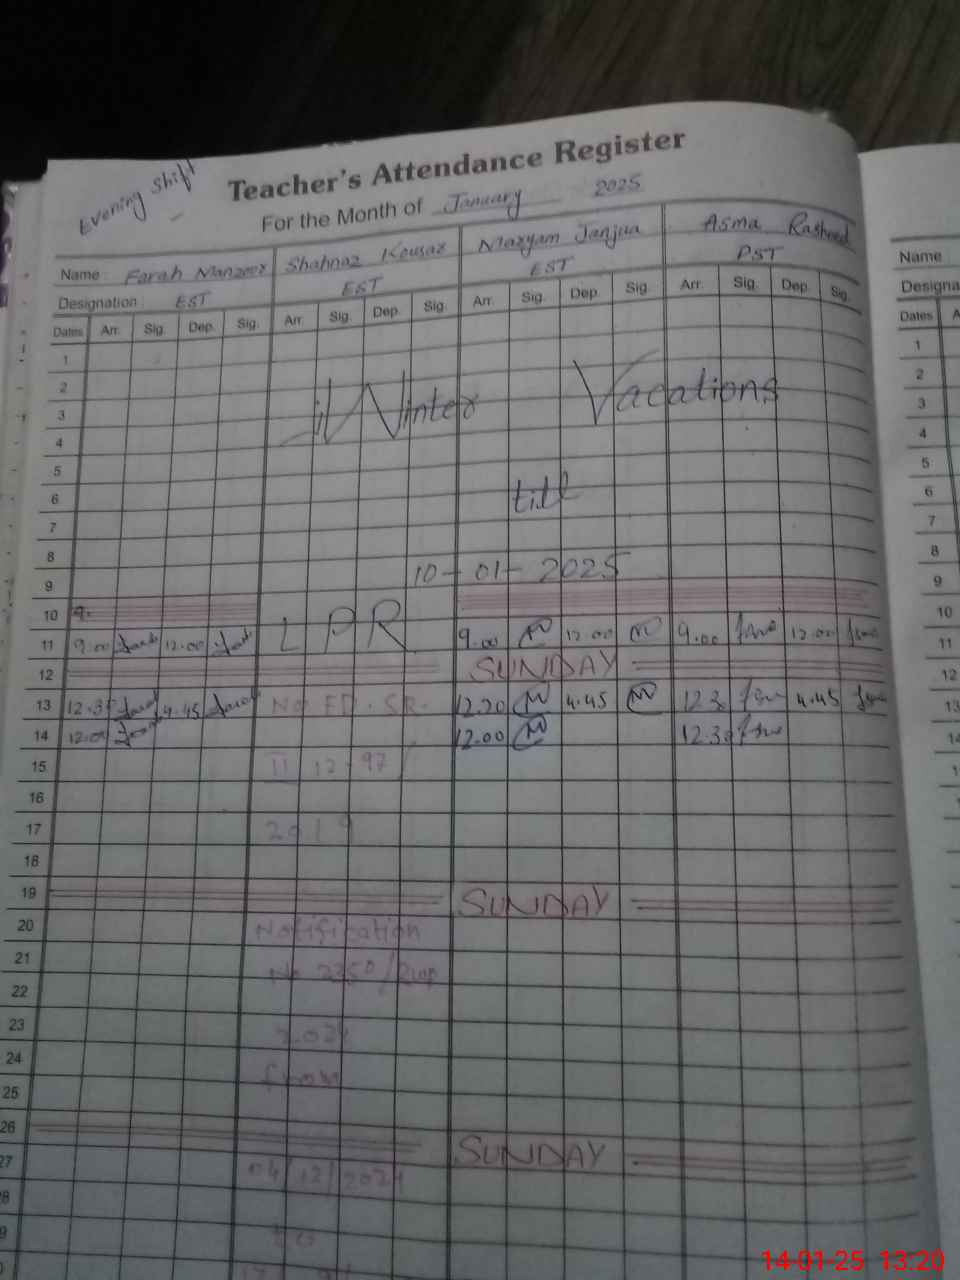 Evening Shift
Teacher's Attendance Register
For the Month of January 2025
Name: Farah Manzoor Shahnaz Kousar Maryam Janjua Asma Rasheed
Designation EST EST EST PST
Dates Arr. Sig. Dep. Sig. Arr. Sig. Dep. Sig. Arr. Sig. Dep. Sig. Arr. Sig. Dep. Sig.
1
2
3 Winter Vacations
4
5
6 till
7
8
9 10-01-2025
10 9.
11 9.00 12.00 L P R 9.00 12.00 9.00 12.00
12 SUNDAY
13 12.3 4.45 No ED. SR. 12.20 4.45 12.30 4.45
14 12.00 12.00 12.30
15 II 12-97/
16
17 2019
18
19 SUNDAY
20 Notification
21
22 No 2350/
23 2024
24 from
25
26 SUNDAY
27 04/12/2024
28
to
Name
Designa
Dates A
1
2
3
4
5
6
7
8
9
10
11
12
13
14
14-01-25 13:20